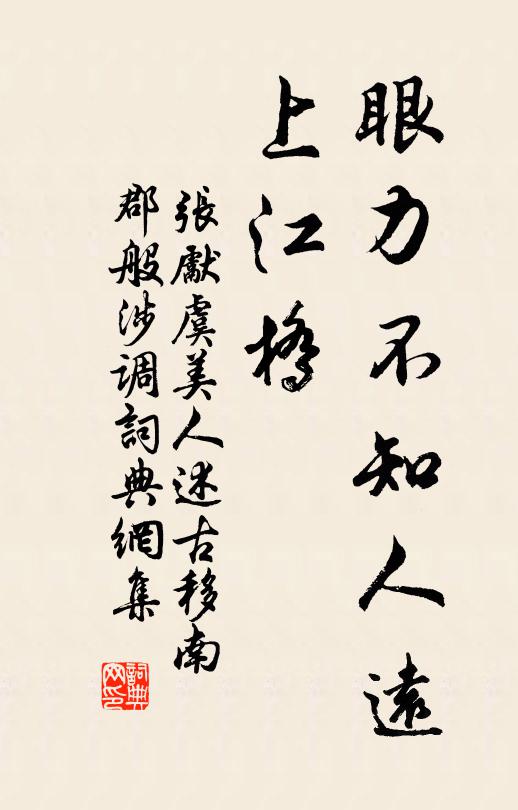 眼力不知人遠
上江橋
張獻虞美人述古移南
郡般涉調詞典網集
詞典網印